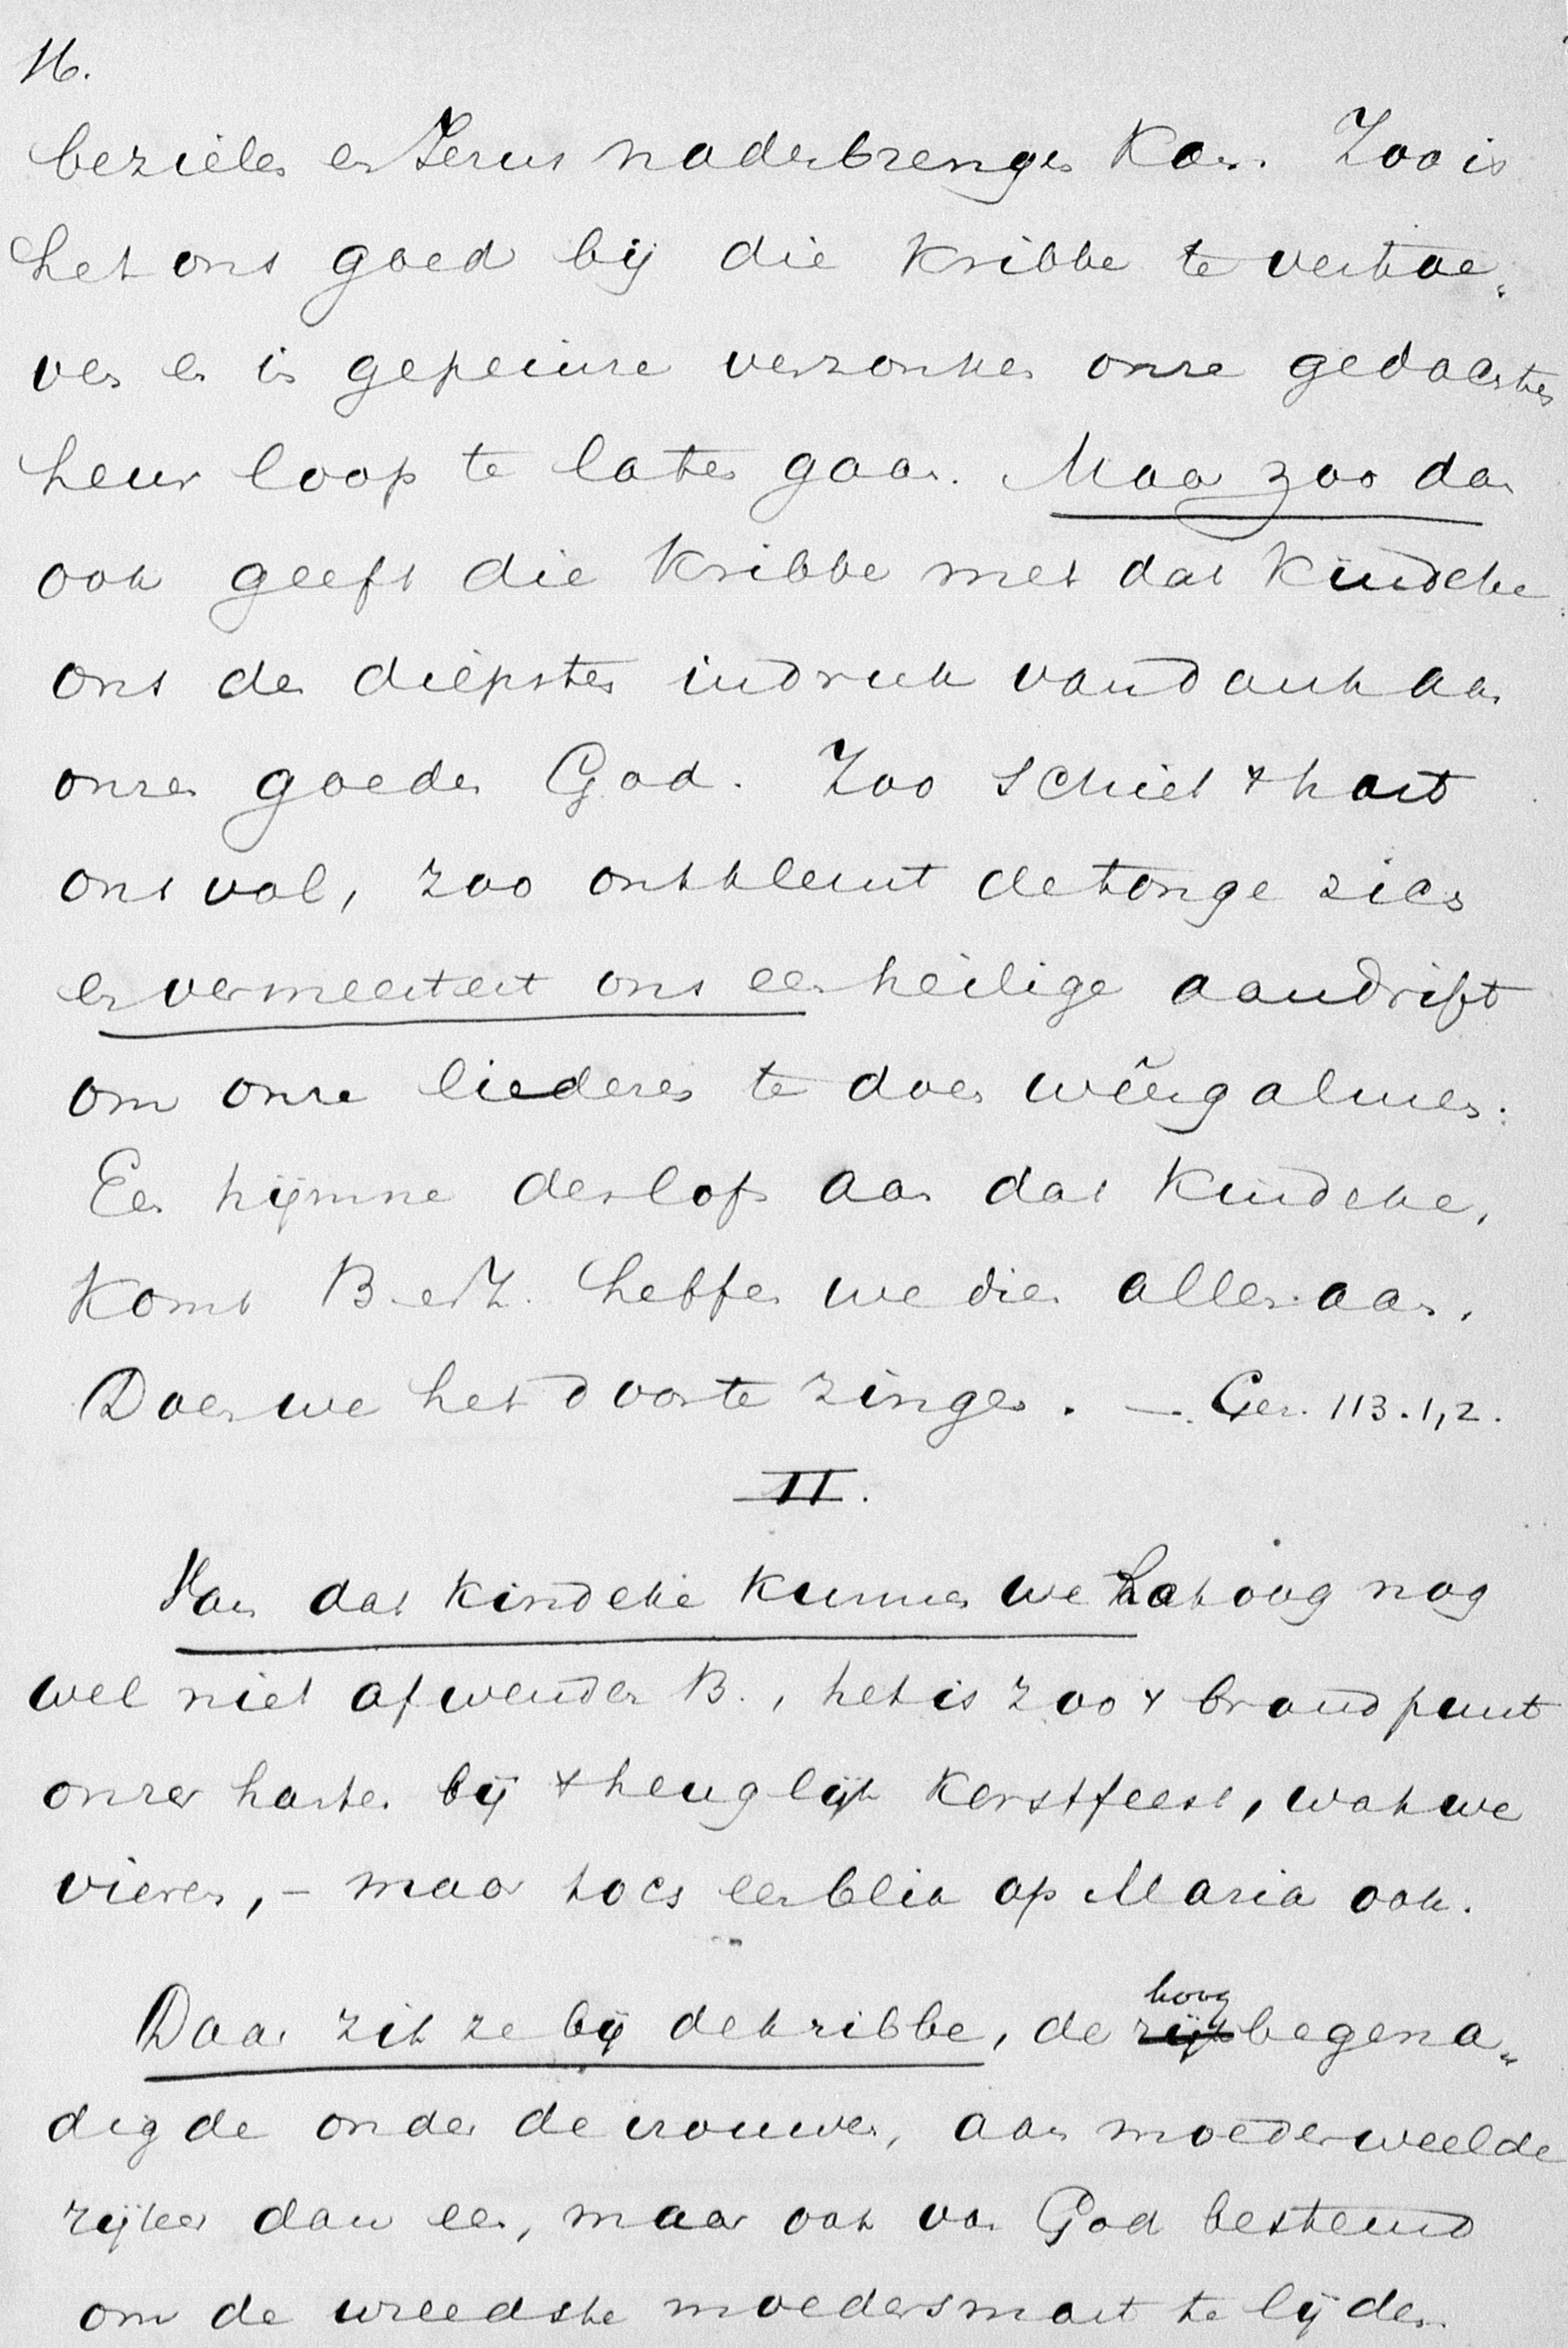 16.
bezielen en Jezus naderbrengen kan. Zoo is
het ons goed bij die kribbe te vertoe„
ven en in gepeinze verzonken onze gedachten
heur loop te laten gaan. Maar zoo dan
ook geeft die kribbe met dat kindeke
ons den diepsten indruk van dank aan
onzen goeden God. Zoo schiet 't hart
ons vol, zoo ontklemt de tonge zich
en vermeestert ons een heilige aandrift
om onze liederen te doen weêrgalmen.
Een hijmne des lofs aan dat kindeke,
komt B. en Z. heffen we dien allen aan.
Doen we het door te zingen. — Gez. 113. 1,2.
II.
Van dat kindeke kunnen we het oog nog
wel niet afwenden B., het is zoo 't brandpunt
onzer harten bij 't heuglijk Kerstfeest, wat we
vieren, – maar toch een blik op Maria ook.
Daar zit ze bij de kribbe, de hoog begena„
digde onder de vrouwen, aan moederweelde
rijker dan een, maar ook van God bestemd
om de wreedste moedersmart te lijden